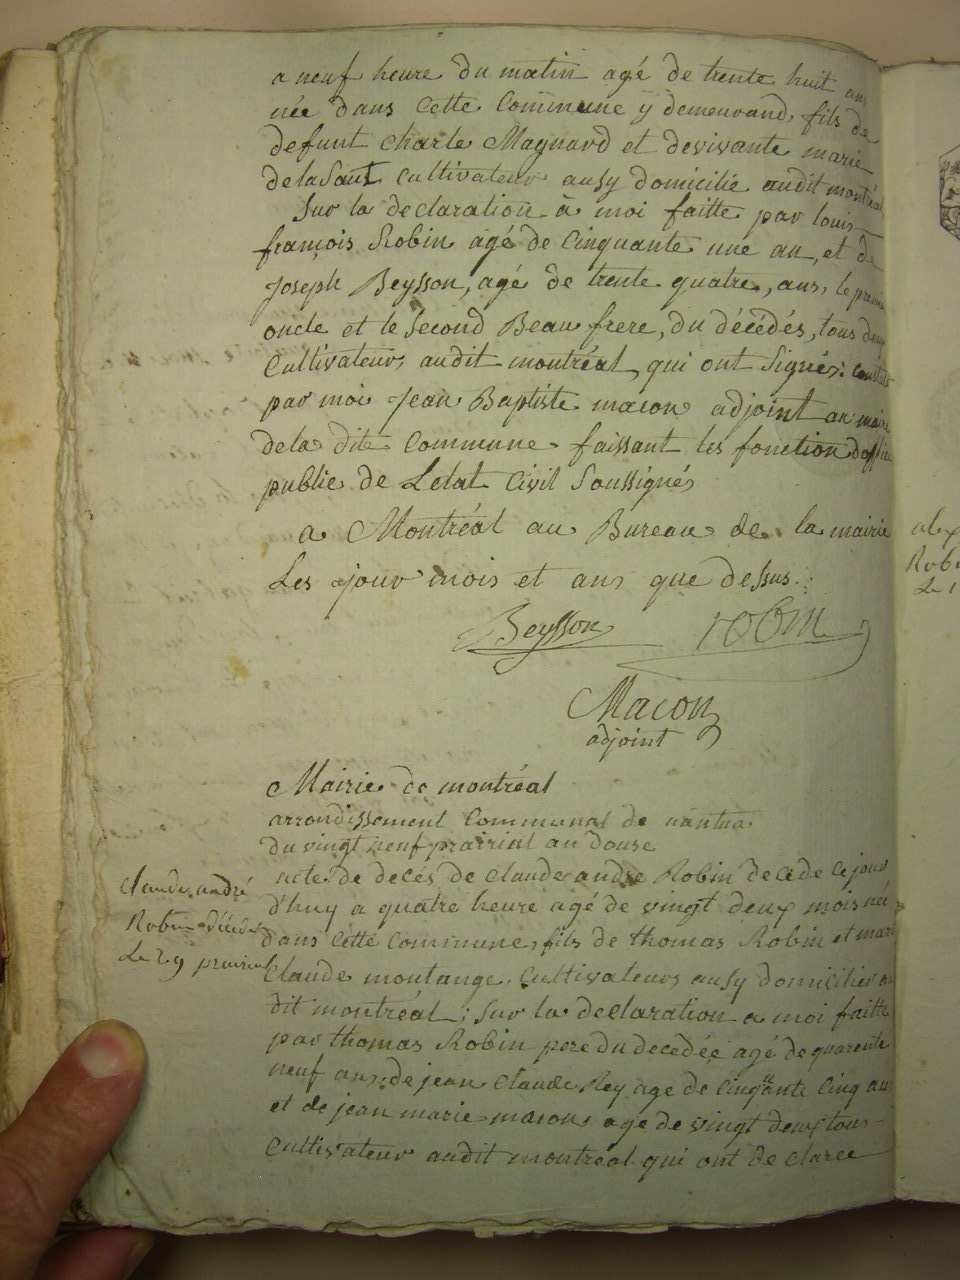 a neuf heure du matin agé de trente huit ans
née dans Cette Commune ÿ demeurand, fils de
defunt Charle Magnard et devivante marie
delaSaux Cultivateur ausy domicilié audit montréal
Sur la declaration à moi faitte par louis
françois Robin agé de Cinquante une an, et de
Joseph Beysson, agé de trente quatre, ans, le premier
oncle et le Second Beau frere, du décédés, tous deux
Cultivateurs audit montréal, qui ont Signés: constaté
par moi Jean Baptiste macon adjoint au maire
dela dite Commune faissant les fonction dofficier
publie de Letat Civil Soussignés
a Montréal au Bureau de la mairie
Les jour mois et ans que dessus.
Beysson robin
Macon
adjoint
Mairie de montréal
arrondissement Communal de nantua
du vingt neuf prairial an douse
acte de decés de Claude andre Robin decede ce jour
d'huy a quatre heure agé de vingt deux mois née
dans Cette Commune, fils de thomas Robin et marie
Claude montange, Cultivateurs ausy domicilier au
dit montréal; Sur la declaration a moi faitte
par thomas Robin pere du decedée agé de quarente
neuf ans, de jean Claude Rey age de Cinquante Cinq an
et de jean marie macon age de vingt deux tous
Cultivateur audit montréal qui ont de claree
Claude andré
Robin décédé
Le 29 prairial
alex
Robi
Le 1